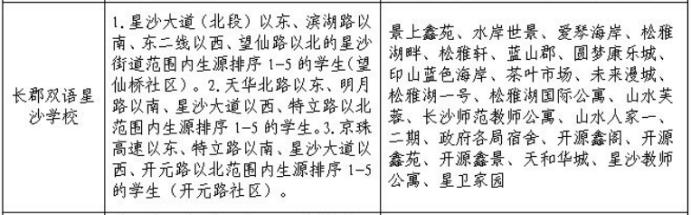 长郡双语星
沙学校
1.星沙大道（北段）以东、滨湖路以
南、东二线以西、望仙路以北的星沙
街道范围内生源排序1-5的学生(望
仙桥社区)。2.天华北路以东、明月
路以南、星沙大道以西、特立路以北
范围内生源排序1-5的学生。3.京珠
高速以东、特立路以南、星沙大道以
西、开元路以北范围内生源排序1-5
的学生（开元路社区）。
景上鑫苑、水岸世景、爱琴海岸、松雅
湖畔、松雅轩、蓝山郡、圆梦康乐城、
印山蓝色海岸、茶叶市场、未来漫城、
松雅湖一号、松雅湖国际公寓、山水芙
蓉、长沙师范教师公寓、山水人家一、
二期、政府各局宿舍、开源鑫阁、开源
鑫苑、开源鑫景、天和华城、星沙教师
公寓、星卫家园